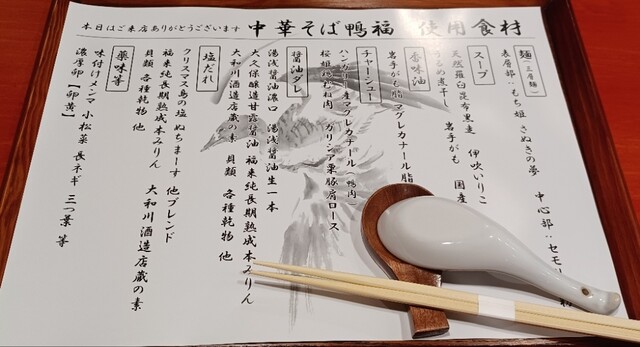 本日はご来店ありがとうございます
中華そば鴨福 使用食材
麺（三層麺）
表層部：もち姫 さぬきの夢
中心部：セモリ
スープ
天然羅臼昆布黒走 伊吹いりこ
うるめ煮干し 岩手がも 国産
香味油
岩手がも脂 マグレカナール脂
チャーシュー
ハンガリー産マグレカナール（鴨肉）
桜姫鶏むね肉 ガリシア栗豚肩ロース
醤油ダレ
湯浅醤油濃口 湯浅醤油生一本
大久保醸造甘露醤油 福来純長期熟成本みりん
大和川酒造店蔵の素 貝類 各種乾物 他
塩だれ
クリスマス島の塩 ぬちまーす 他ブレンド
福来純長期熟成本みりん 大和川酒造店蔵の素
貝類 各種乾物 他
薬味等
味付けメンマ 小松菜 長ネギ 三つ葉 等
濃厚卵【卵黄】